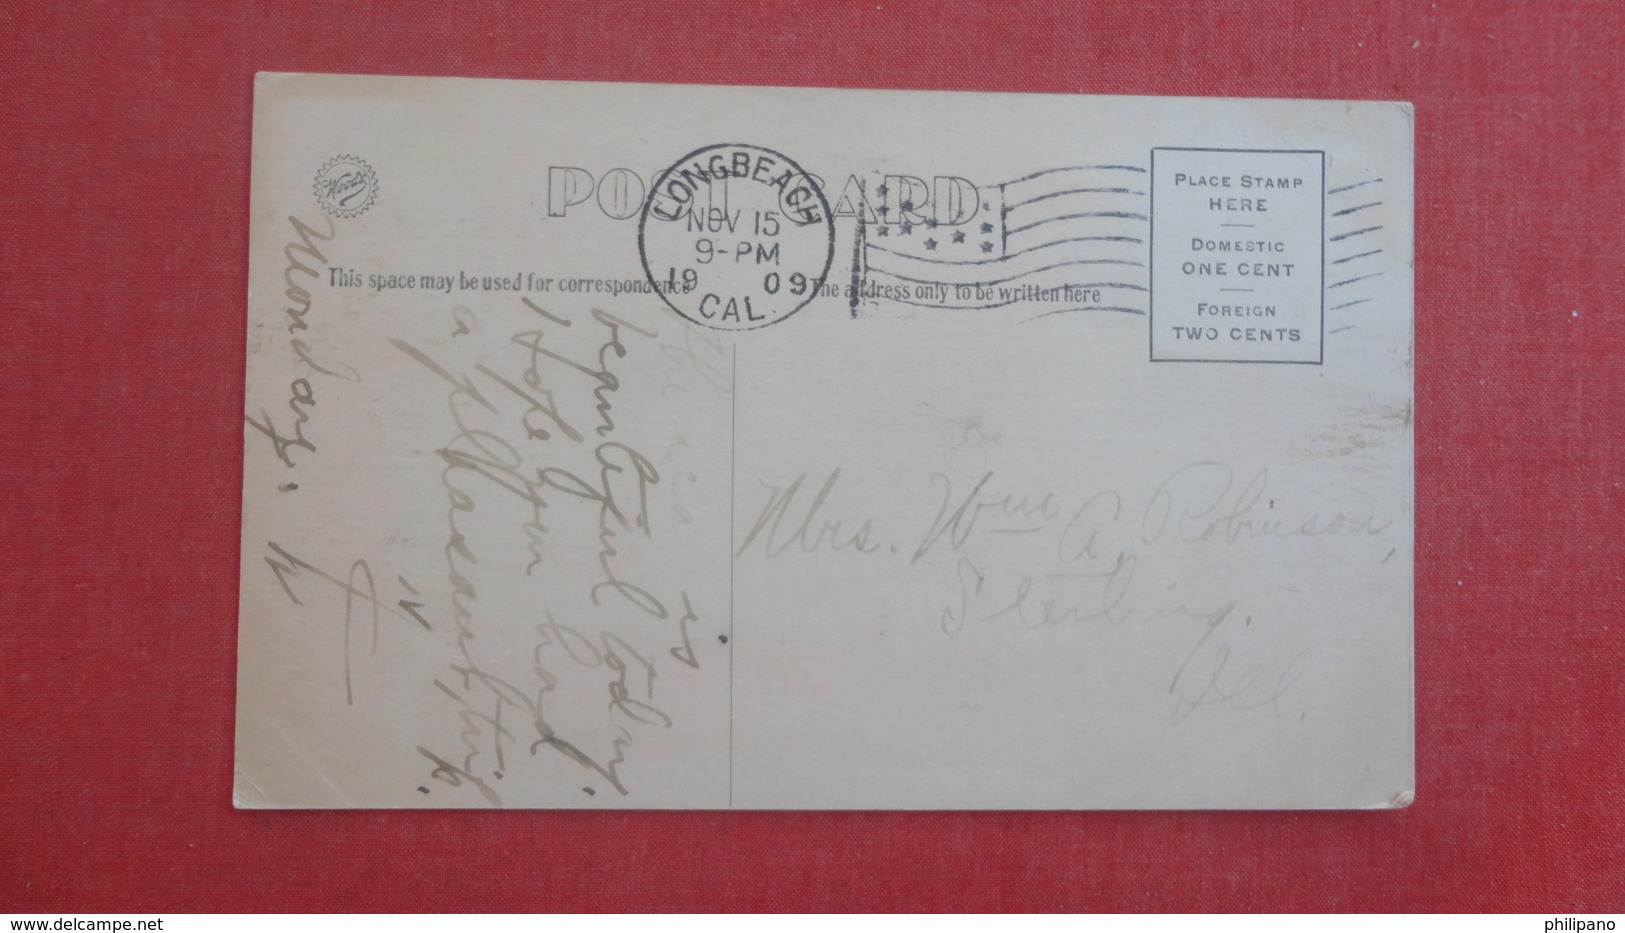 Woods
POST CARD
LONGBEACH
NOV 15
9-PM
1909
CAL.
PLACE STAMP
HERE
DOMESTIC
ONE CENT
FOREIGN
TWO CENTS
This space may be used for correspondence
The address only to be written here
The sea is
beautiful today.
I hope you had
a pleasant trip.
Monday.
Mrs. Wm A. Robinson,
Sterling.
Ill.
www.delcampe.net
philipano